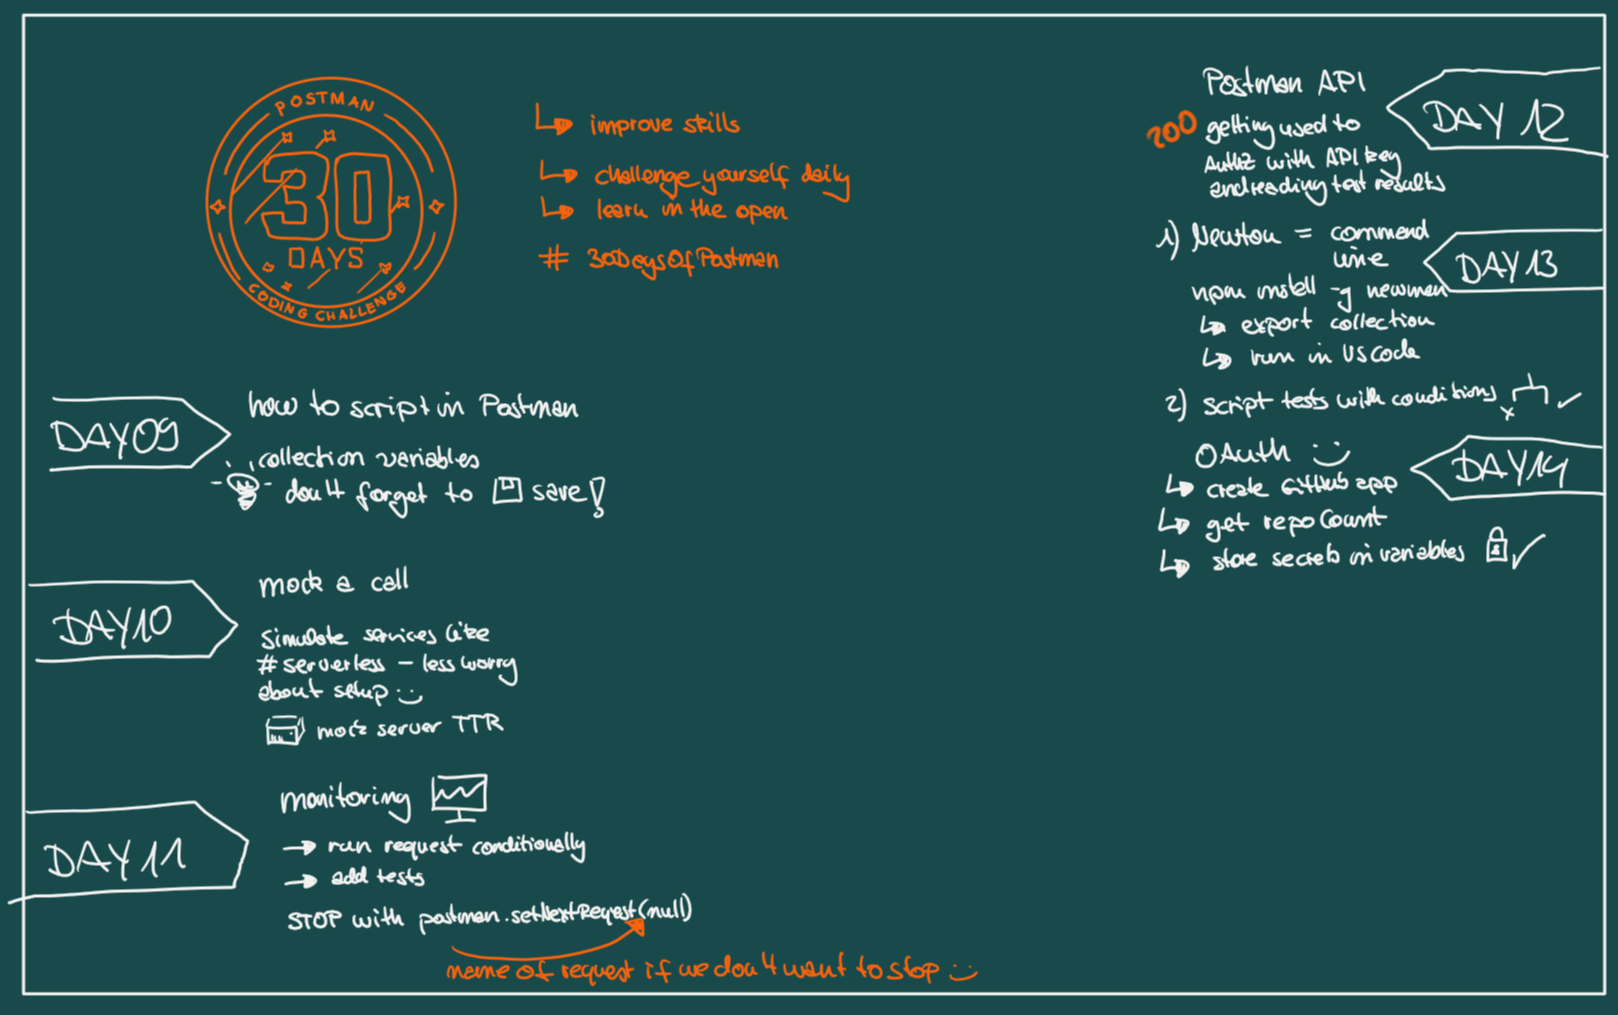 POSTMAN
30
DAYS
CODING CHALLENGE
improve skills
challenge yourself daily
learn in the open
# 30DaysOfPostman
DAY09
how to script in Postman
collection variables
don't forget to save!
DAY10
mock a call
Simulate services like
#serverless - less worry
about setup :)
mock server TTR
DAY11
monitoring
→ run request conditionally
→ add tests
STOP with postman.setNextRequest(null)
name of request if we don't want to stop :)
DAY 12
Postman API
200 getting used to
AuthZ with API key
and reading test results
DAY13
1) Newton = command
line
npm install -g newman
export collection
run in VScode
2) script tests with conditions x ✓
DAY14
OAuth :)
create GitHub app
get repoCount
store secrets in variables ✓